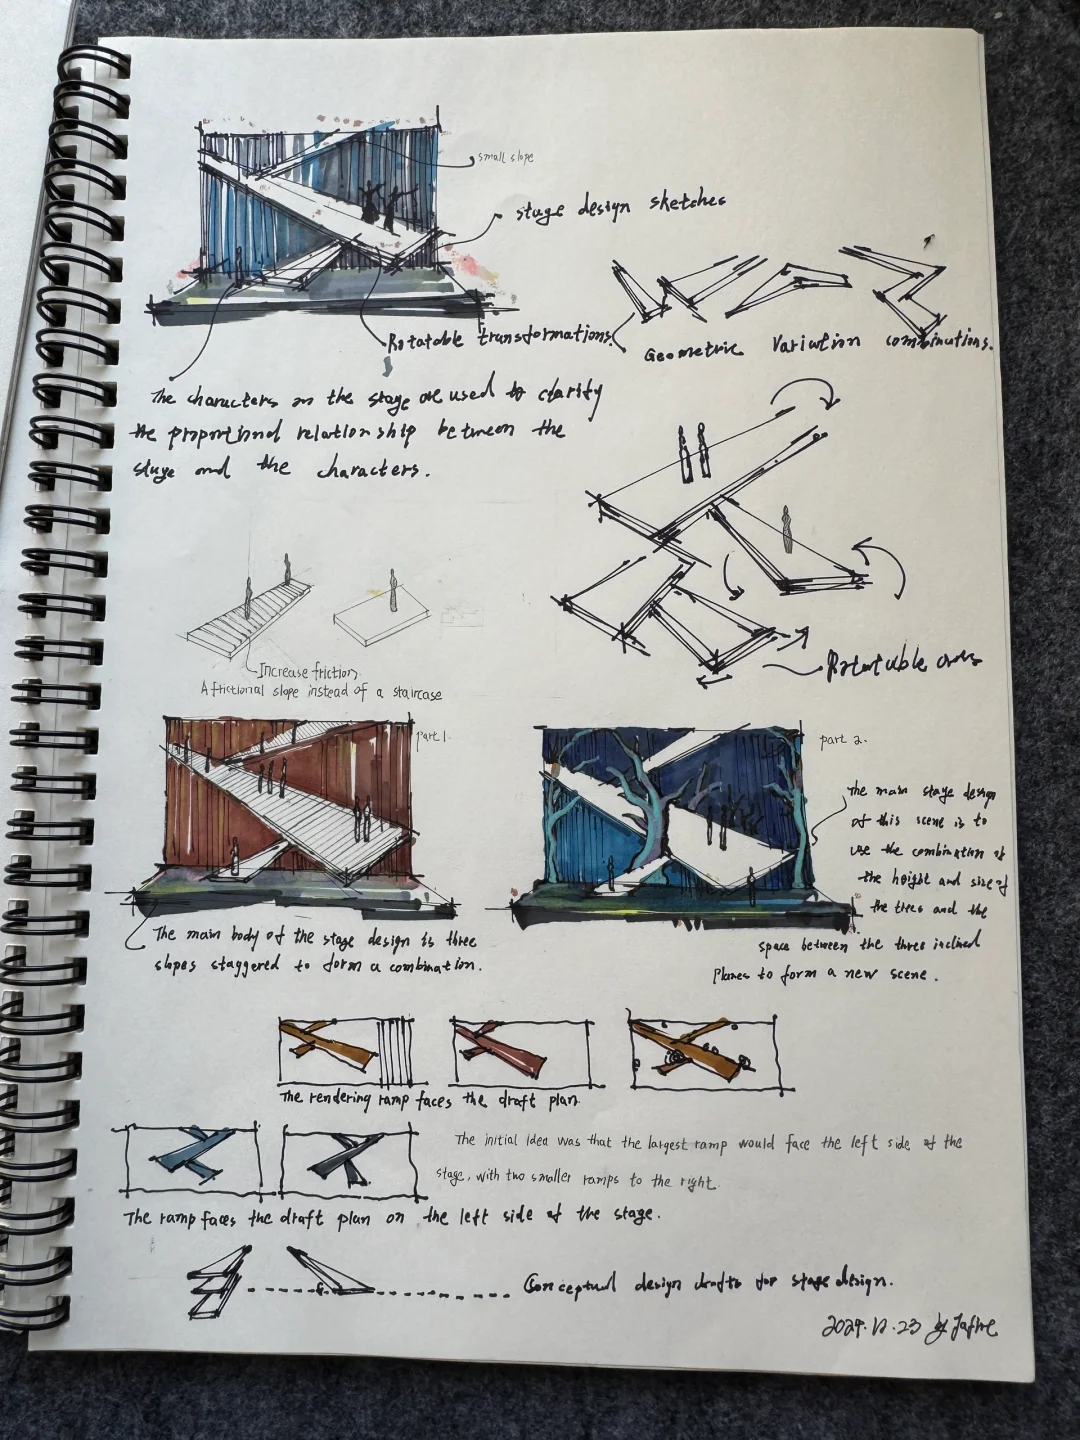 small slope
stage design sketches
Rotatable transformations.
Geometric Variation combinations.
The characters on the stage are used to clarify
the proportional relationship between the
stage and the characters.
Increase friction
A frictional slope instead of a staircase
Rotatable
part 1.
part 2.
The main stage design
of this scene is to
use the combination of
the height and size of
the trees and the
space between the three inclined
planes to form a new scene.
The main body of the stage design is three
slopes staggered to form a combination.
The rendering ramp faces the draft plan
The initial idea was that the largest ramp would face the left side of the
stage, with two smaller ramps to the right.
The ramp faces the draft plan on the left side of the stage.
Conceptual design drafts for stage design.
2024.12.23 by